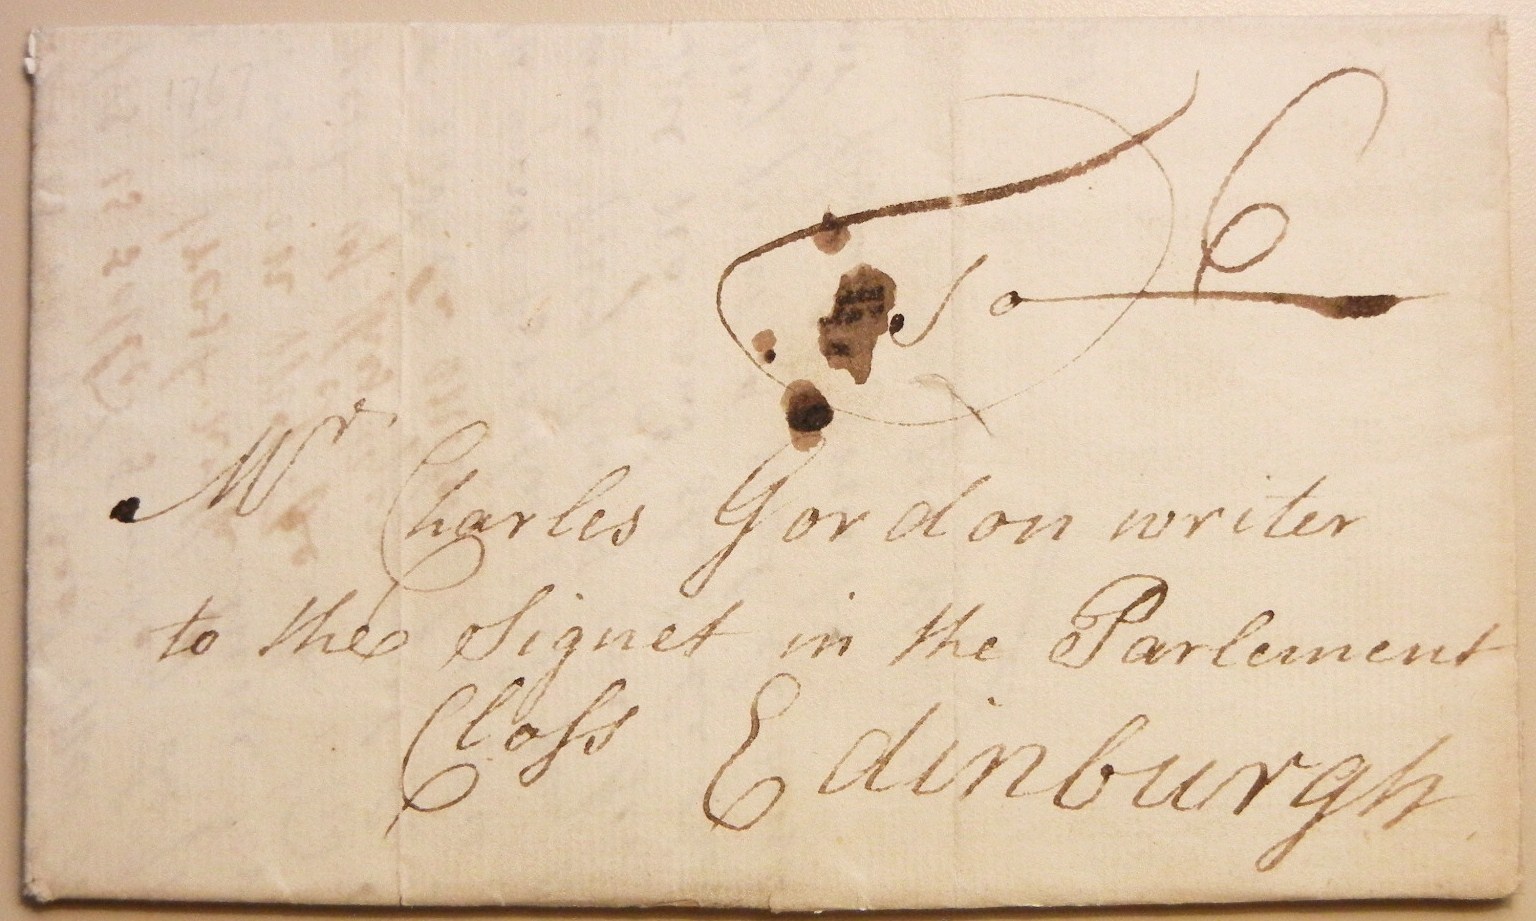 1767
6
Mr Charles Gordon writer
to the Signet in the Parlement
Closs Edinburgh